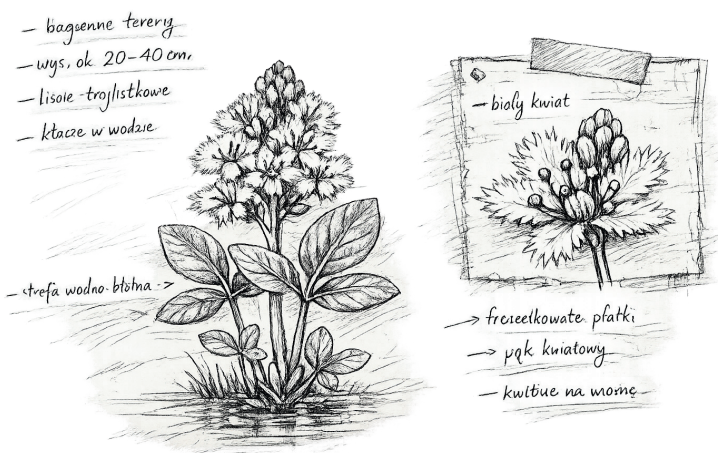 – bagsenne tereriy
– wys. ok 20–40 cm.
– lisoie -trojlistkowe
– kłacze w wodzie.
– strefa wodno-błotna ->
– bioly kwiat
→ frezeelkowate płatki
→ pąk kwiatowy
– kwltiue na wiomę